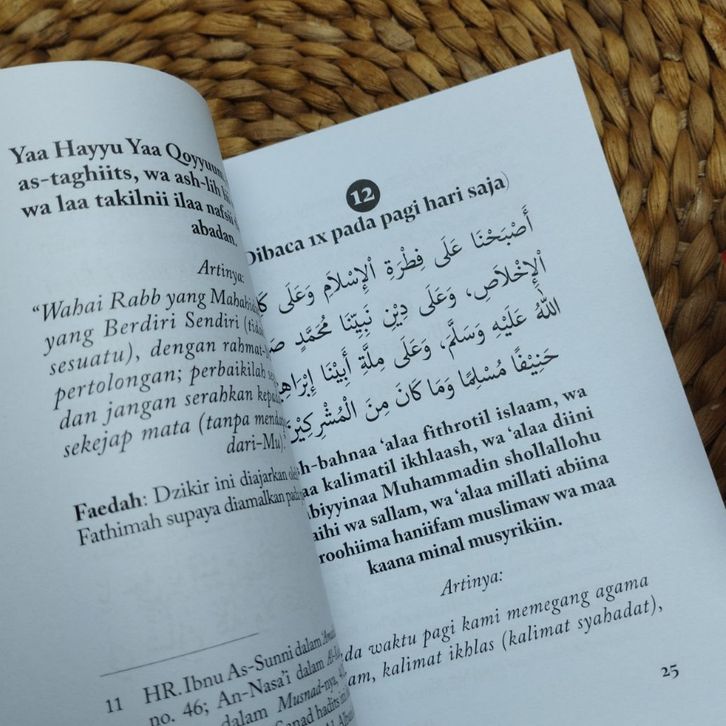 Yaa Hayyu Yaa Qoyyuum
as-taghiits, wa ash-lih
wa laa takilnii ilaa nafsii
abadan.
Artinya:
“Wahai Rabb yang Maha
yang Berdiri Sendiri
sesuatu), dengan rahmat-
pertolongan; perbaikilah
dan jangan serahkan
sekejap mata (tanpa
dari-Mu).”
Faedah: Dzikir ini diajarkan
Fathimah supaya diamalkan
11 HR. Ibnu As-Sunni dalam
no. 46; An-Nasa'i dalam
dalam Musnad-nya,
Sanad hadits ini
12
Dibaca 1x pada pagi hari saja)
أَصْبَحْنَا عَلَى فِطْرَةِ الْإِسْلَامِ وَعَلَى
الْإِخْلَاصِ، وَعَلَى دِيْنِ نَبِيِّنَا مُحَمَّدٍ
اللهُ عَلَيْهِ وَسَلَّمَ، وَعَلَى مِلَّةِ أَبِيْنَا
حَنِيْفًا مُسْلِمًا وَمَا كَانَ مِنَ الْمُشْرِكِيْنَ
h-bahnaa ‘alaa fithrotil islaam, wa
aa kalimatil ikhlaash, wa ‘alaa diini
abiyyinaa Muhammadin shollallohu
aihi wa sallam, wa ‘alaa millati abiina
roohiima haniifam muslimaw wa maa
kaana minal musyrikiin.
Artinya:
da waktu pagi kami memegang agama
am, kalimat ikhlas (kalimat syahadat),
25